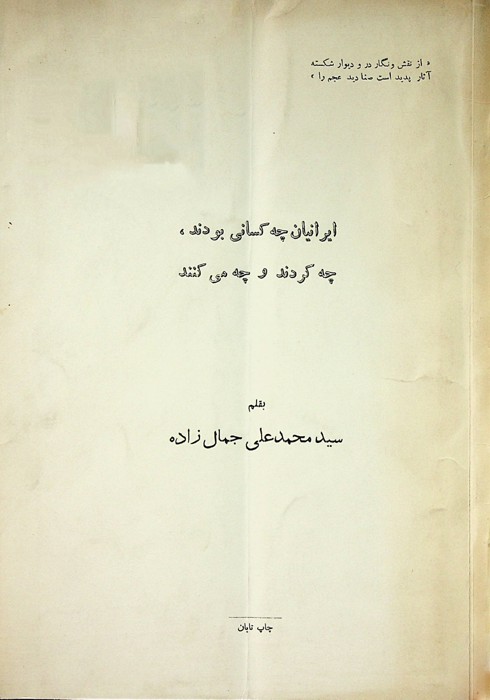 « از نقش و نگار در و دیوار شکسته
آثار پدید است صنادید عجم را »
ایرانیان چه کسانی بودند ،
چه کردند و چه می کنند
بقلم
سید محمد علی جمال زاده
چاپ تابان